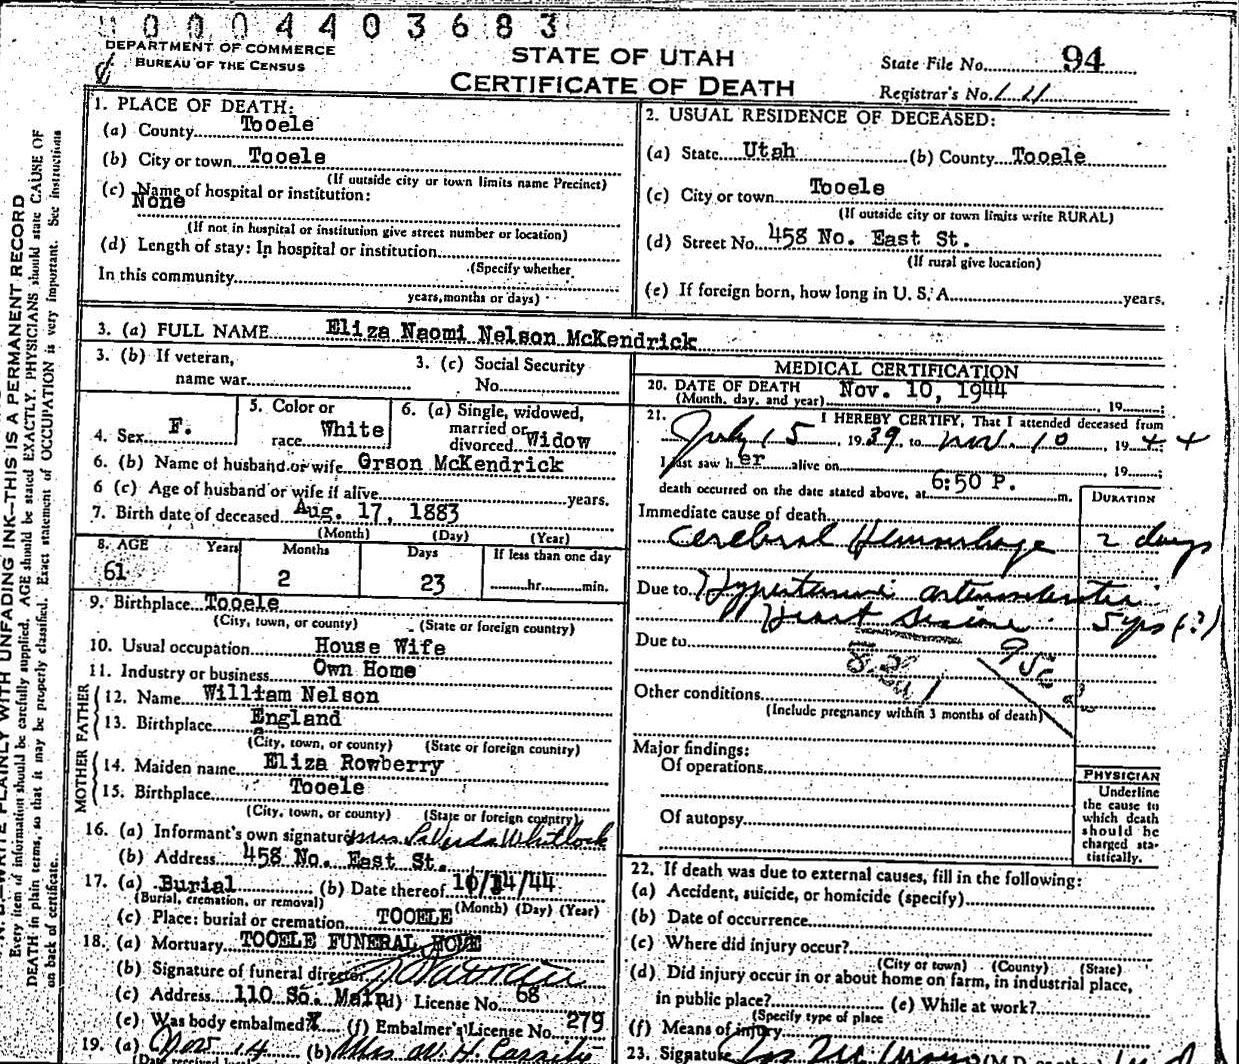 0004403683
DEPARTMENT OF COMMERCE
BUREAU OF THE CENSUS
STATE OF UTAH
CERTIFICATE OF DEATH
State File No. 94
Registrar's No.
1. PLACE OF DEATH:
(a) County Tooele
(b) City or town Tooele
(If outside city or town limits name Precinct)
(c) Name of hospital or institution:
None
(If not in hospital or institution give street number or location)
(d) Length of stay: In hospital or institution
(Specify whether
In this community
years, months or days)
2. USUAL RESIDENCE OF DECEASED:
(a) State Utah (b) County Tooele
(c) City or town Tooele
(If outside city or town limits write RURAL)
(d) Street No. 458 No. East St.
(If rural give location)
(e) If foreign born, how long in U. S. A. years.
3. (a) FULL NAME Eliza Naomi Nelson McKendrick
3. (b) If veteran, name war
3. (c) Social Security No.
4. Sex F.
5. Color or race White
6. (a) Single, widowed, married or divorced Widow
6. (b) Name of husband or wife Orson McKendrick
6 (c) Age of husband or wife if alive years.
7. Birth date of deceased Aug. 17, 1883
(Month) (Day) (Year)
8. AGE Years Months Days If less than one day
61 2 23 hr. min.
9. Birthplace Tooele
(City, town, or county) (State or foreign country)
10. Usual occupation House Wife
11. Industry or business Own Home
FATHER
12. Name William Nelson
13. Birthplace England
(City, town, or county) (State or foreign country)
MOTHER
14. Maiden name Eliza Rowberry
15. Birthplace Tooele
(City, town, or county) (State or foreign country)
16. (a) Informant's own signature Mrs. LaVerda Whitlock
(b) Address 458 No. East St.
17. (a) Burial (b) Date thereof 14/44
(Burial, cremation, or removal) (Month) (Day) (Year)
(c) Place: burial or cremation TOOELE
18. (a) Mortuary TOOELE FUNERAL HOME
(b) Signature of funeral director
(c) Address 110 So. Main (d) License No. 68
(e) Was body embalmed? X (f) Embalmer's License No. 279
19. (a) Nov 14 (b) Mrs W. H. Cassity
(Date received
MEDICAL CERTIFICATION
20. DATE OF DEATH Nov. 10, 1944
(Month, day, and year) 19
21. I HEREBY CERTIFY, That I attended deceased from
July 15 1939, to Nov. 10 1944
I last saw her alive on 19
death occurred on the date stated above, at 6:50 P. m.
DURATION
Immediate cause of death
Cerebral Hemorrhage 2 days
Due to Hypertensive arteriosclerotic
Heart Disease 5 yrs (?)
Due to
Other conditions
(Include pregnancy within 3 months of death)
Major findings:
Of operations
Of autopsy
PHYSICIAN
Underline
the cause to
which death
should be
charged sta-
tistically.
22. If death was due to external causes, fill in the following:
(a) Accident, suicide, or homicide (specify)
(b) Date of occurrence
(c) Where did injury occur?
(City or town) (County) (State)
(d) Did injury occur in or about home on farm, in industrial place,
in public place? (e) While at work?
(Specify type of place
(f) Means of injury
23. Signature
WRITE PLAINLY WITH UNFADING INK—THIS IS A PERMANENT RECORD
Every item of information should be carefully supplied. AGE should be stated EXACTLY. PHYSICIANS should state CAUSE OF
DEATH in plain terms, so that it may be properly classified. Exact statement of OCCUPATION is very important. See instructions
on back of certificate.